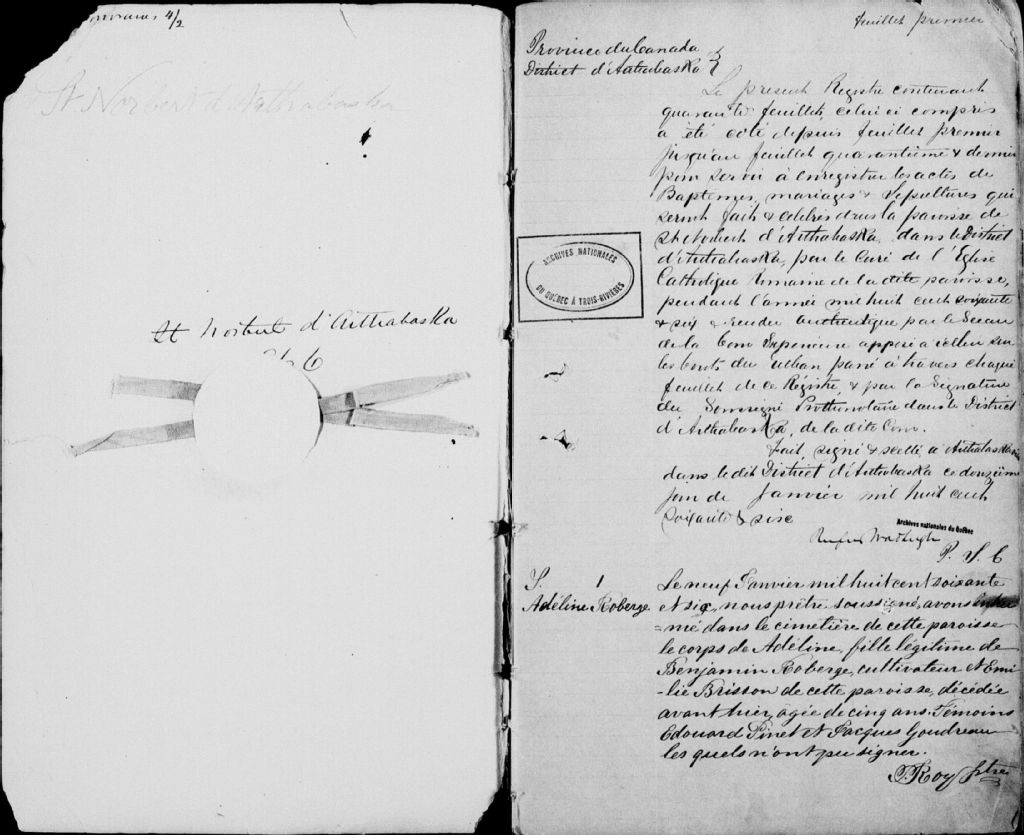 4/2
St Norbert d'Arthabaska
St Norbert d'Arthabaska
66
feuillet premier
Province du Canada
District d'Arthabaska
Le present Registre contenant
quarante feuillets, celui ci compris
a été coté depuis feuillet premier
jusqu'au feuillet quarantième & dernier
pour servir à enregistrer les actes de
Baptemes, mariages & Sepultures qui
seront faits & célébrés dans la paroisse de
St Norbert d'Arthabaska, dans le District
d'Arthabaska, par le Curé de l'Eglise
Catholique Romaine de la dite paroisse,
pendant l'année mil huit cent soixante
& six & rendu authentique par le Sceau
de la Cour Superieure apposé à celui sur
les bouts du ruban passé à travers chaque
feuillet de ce Régistre & par la Signature
du Soussigné Prothonotaire dans le District
d'Arthabaska, de la dite Cour.
Fait, signé & scellé, à Arthabaska
dans le dit District d'Arthabaska ce douzième
jour de Janvier mil huit cent
soixante & six
Archives nationales du Québec
Rufus Wadleigh
P. S. C
ARCHIVES NATIONALES
DU QUÉBEC À TROIS-RIVIÈRES
S. 1
Adéline Roberge
Le neuf Janvier mil huit cent soixante
et six, nous prêtre soussigné, avons inhu
=mé dans le cimetière de cette paroisse
le corps de Adéline, fille légitime de
Benjamin Roberge, cultivateur et Emi
-lie Brisson de cette paroisse, décédée
avant hier, agée de cinq ans. Témoins
Edouard Pinet et Jacques Goudreau
les quels n'ont pu signer.
J. Roy Ptre